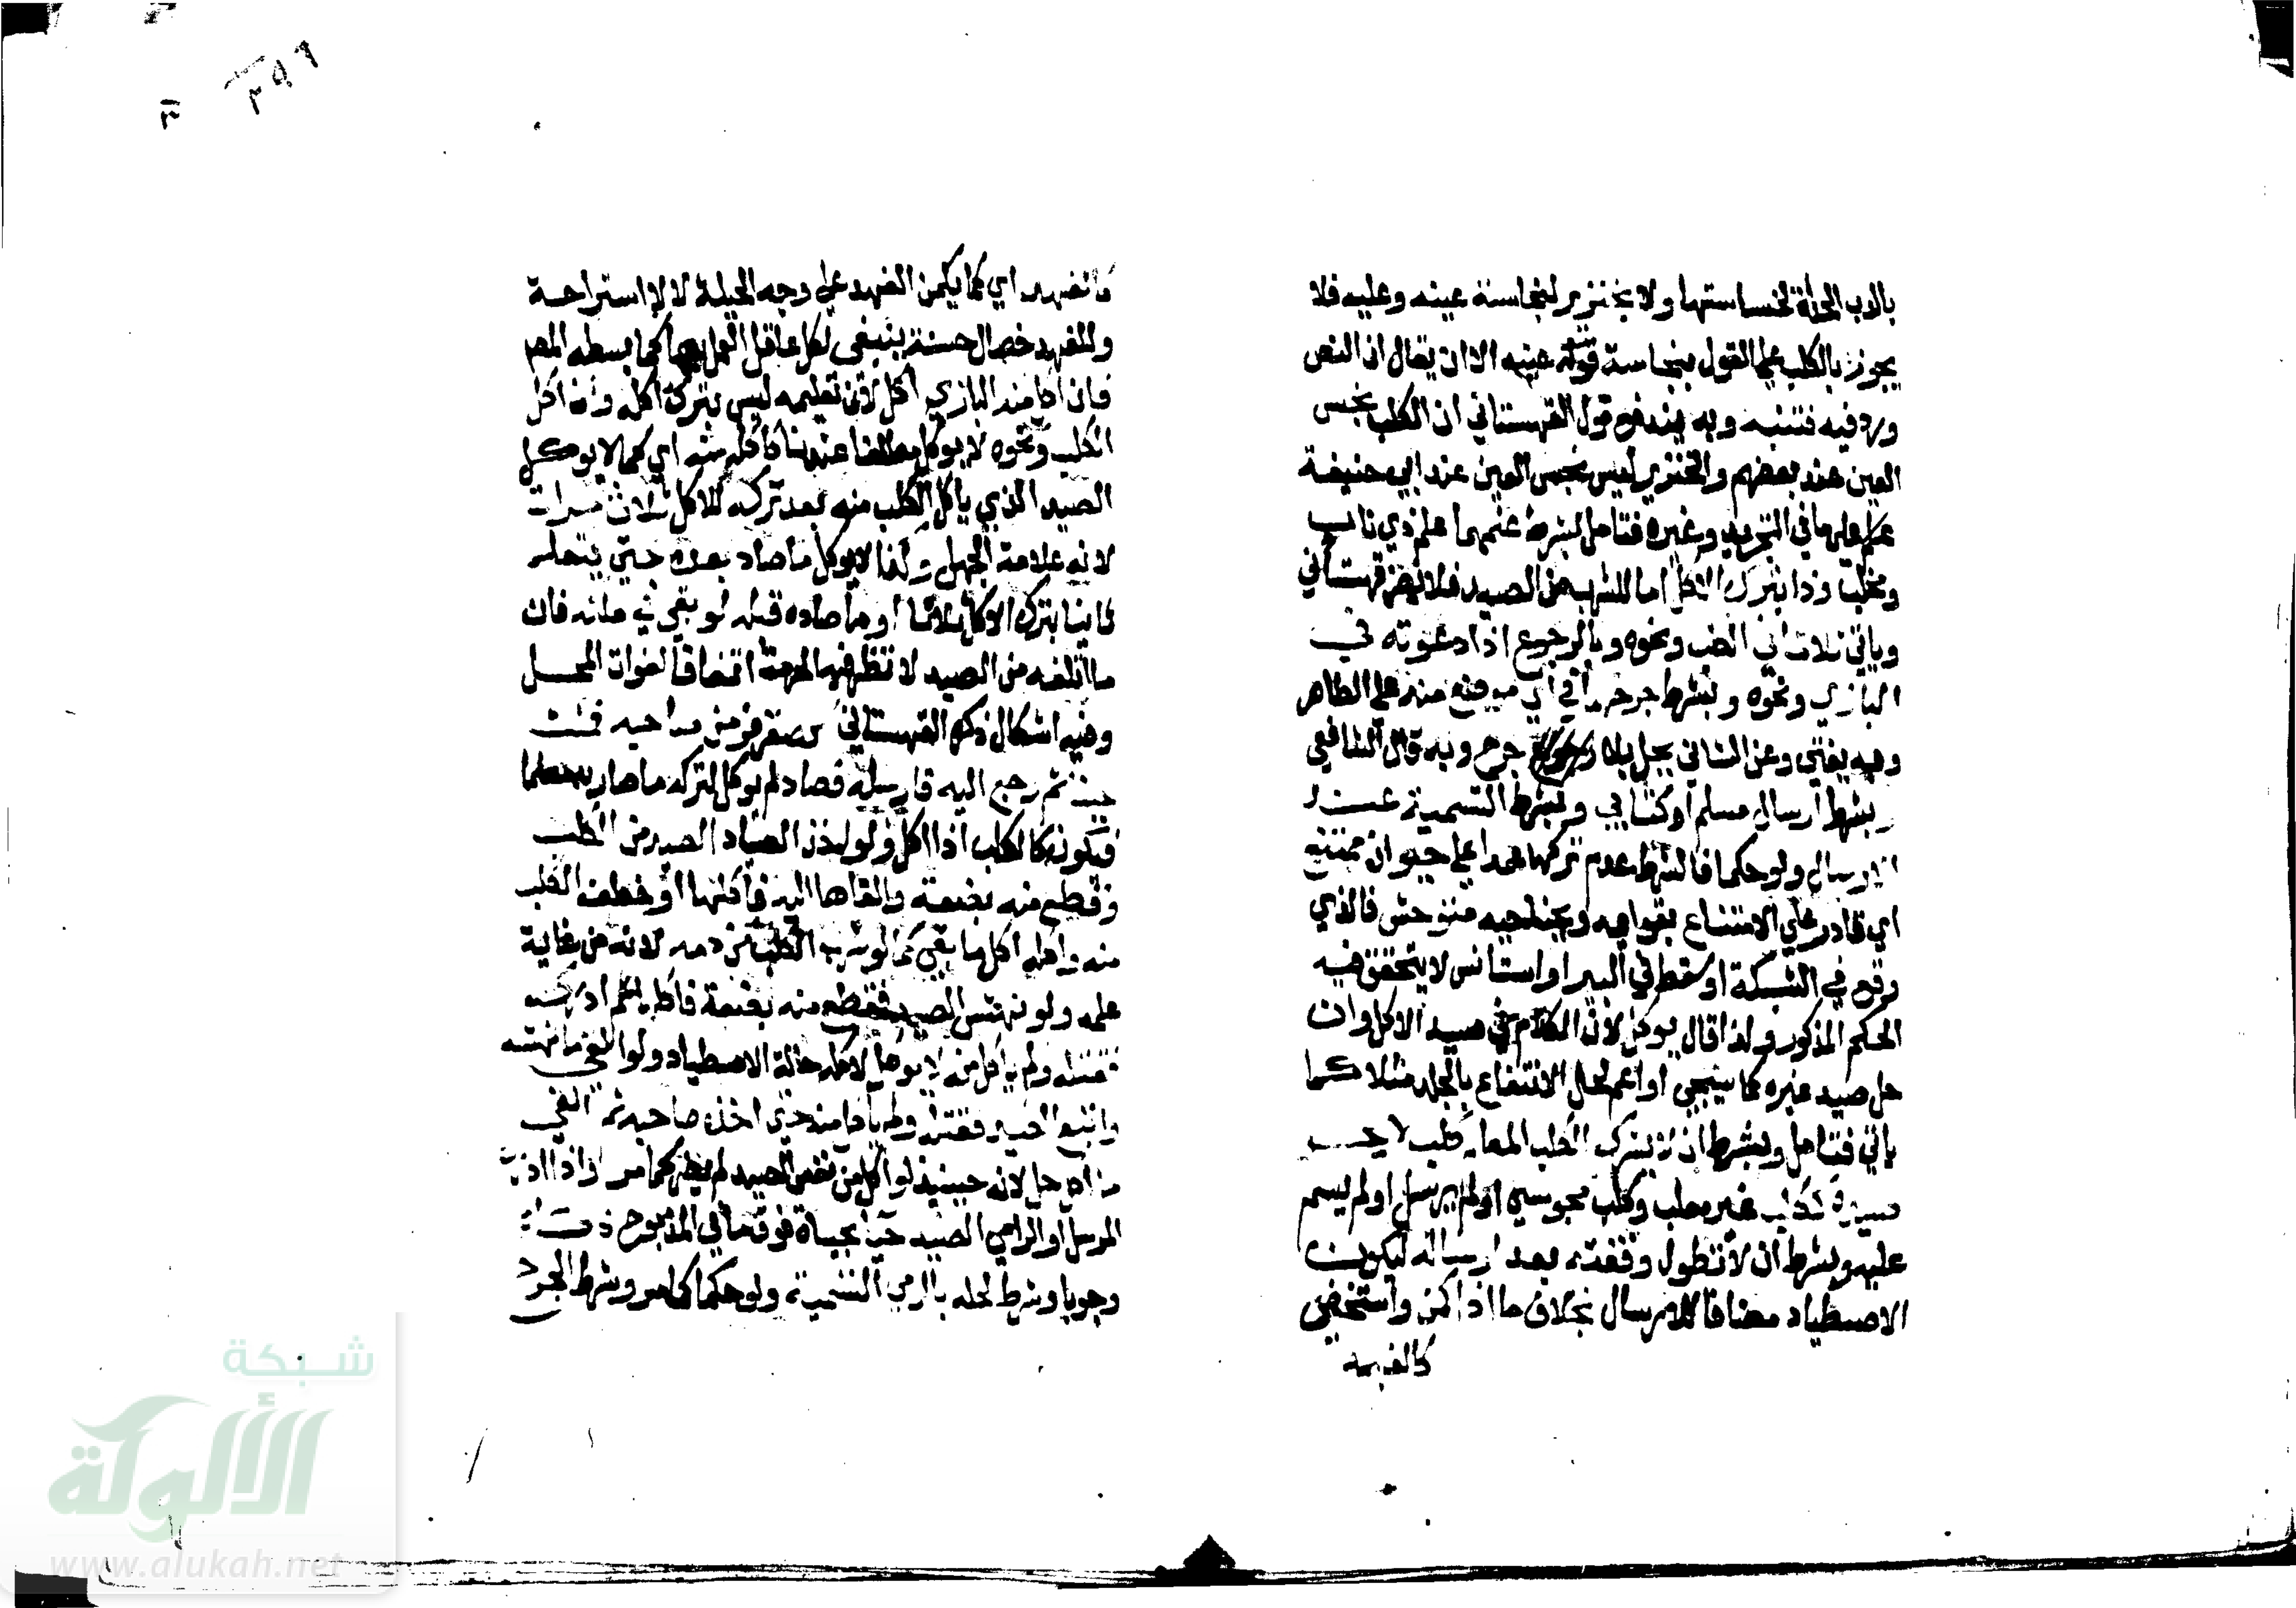 بالدب الحدأة لخساستها ولا بخنزير لنجاسة عينه وعليه فلا
يجوز بالكلب على القول بنجاسة عينه الا ان يقال ان النص
ورد فيه فتنبه وبه يندفع قول القهستاني ان الكلب نجس
العين عند بعضهم والخنزير ليس نجس العين عند ابي حنيفة
على ما في التجريد وغيره فتامل بشرط علمهما علم ذي ناب
ومخلب وذا بترك الاكل اما للشرب من الصيد فلا يضر قهستاني
وياتي ثلاث في الكلب ونحوه وبالرجوع اذا دعوته في
البازي ونحوه وبشرط جرحهما في اي موضع منه على الظاهر
وبه يفتى وعن الثاني يحل بلا جرح وبه قال الشافعي
وبشرط ارسال مسلم او كتابي وبشرط التسمية عند
الارسال ولو حكما فالشرط عدم تركها عمدا على حيوان ممتنع
اي قادر على الامتناع بقوائمه وبجناحيه متوحش فالذي
وقع في الشبكة او سقط في البير او استانس لا يتحقق فيه
الحكم المذكور ولذا قال يوكل لان الكلام في صيد الاكل وان
حل صيد غيره كما سيجي او اعم لحل الانتفاع بالجلد مثلا كما
ياتي فتامل وبشرط ان لا يشرك الكلب المعلم كلب لا يحل
صيده ككلب غير معلم وكلب مجوسي او لم يرسل او لم يسم
عليه وبشرط ان لا تطول وقفته بعد ارساله ليكون
الاصطياد مضافا للارسال بخلاف ما اذا كمن واستخفى
كالفهد
كالفهد اي كما يكمن الفهد على وجه الحيلة لا للاستراحة
وللفهد خصال حسنة ينبغي لكل عاقل العمل بها كما بسطه المص
فان اكل منه البازي اكل لان تعليمه ليس بترك اكله وان اكل
الكلب ونحوه لا يوكل مطلقا عندنا كاكله منه اي كما لا يوكل
الصيد الذي ياكل الكلب منه بعد تركه للاكل ثلاث مرات
لانه علامة الجهل وكذا لا يوكل ما صاد بعده حتى يتعلم
ثانيا بترك الاكل ثلاثا او ما صاده قبله لو بقي في ملكه فان
ما اتلفه من الصيد لا تظهر فيه الحرمة اتفاقا لفوات المحل
وفيه اشكال ذكره القهستاني كصقر فر من صاحبه فمكث
حينا ثم رجع اليه فارسله فصاد لم يوكل لتركه ما صار به معلما
فيكون كالكلب اذا اكل ولو اخذ الصياد الصيد من الكلب
وقطع منه بضعة والقاها اليه فاكلها او خطف الكلب
منه واكله اكل ما بقي كما لو شرب الكلب من دمه لانه من غاية
علمه ولو نهش الصيد فقطع منه بضعة فاكلها ثم ادركه
فقتله ولم ياكل منه لا يوكل لاكله حالة الاصطياد ولو القى ما نهشه
واتبع الصيد فقتله ولم ياكل منه حتى اخذه صاحبه ثم القي
حل لانه حينيذ لو اكل من نفس الصيد لم يضر كما مر واذا ادرك
المرسل او الرامي الصيد حيا بحياة فوق ما في المذبوح ذكاه
وجوبا وشرط لحله بالرمي التسمية ولو حكما كما مر وشرط الجرح